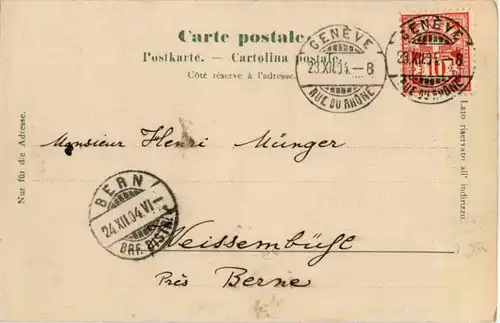 Carte postale
Postkarte. — Cartolina postale.
Côté réservé à l'adresse.
GENÈVE
23.XII.04.—8
RUE DU RHÔNE
GENÈVE
23.XII.04.—8
RUE DU RHÔNE
10
Nur für die Adresse.
Lato riservato all' indirizzo.
Monsieur Henri Münger
BERN
24.XII.04.VI—
BRF. DISTR.
Weissembühl
Près Berne